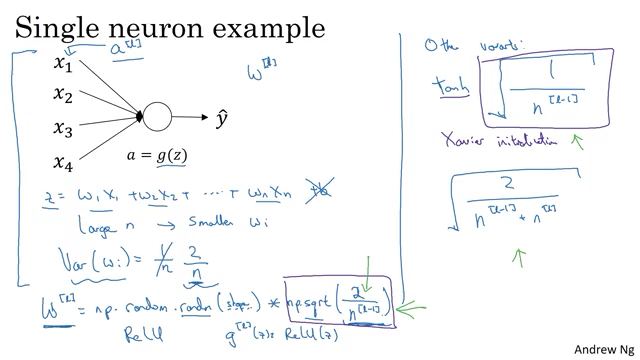 Single neuron example
a^[l]
x₁
x₂
x₃
x₄
ŷ
a = g(z)
w^[l]
z = w₁x₁ + w₂x₂ + ... + wₙxₙ + b
Large n → Smaller wᵢ
Var(wᵢ) = 1/n 2/n
W^[l] = np.random.randn(shape) * np.sqrt(2/n^[l-1])
ReLU g^[l](z) = ReLU(z)
Other variants:
tanh √(1/n^[l-1])
Xavier initialization
√(2/(n^[l-1] + n^[l]))
Andrew Ng